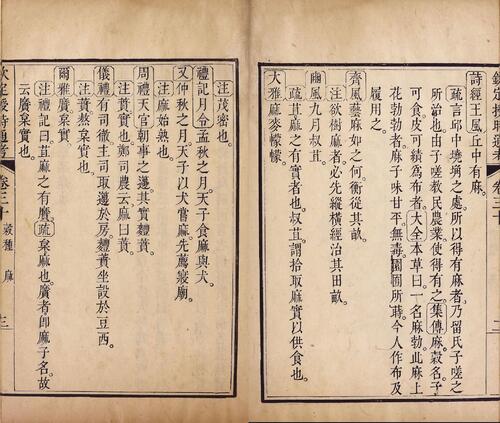 欽定授時通考
詩經王風丘中有麻。
疏言邱中墝埆之處。所以得有麻者。乃留氏子嗟之
所治也。由子嗟教民農業。使得有之。集傳麻。穀名。子
可食。皮可績爲布者。大全本草曰。一名麻勃。此麻上
花勃勃者。麻子味甘平。無毒。園圃所蒔。今人作布及
履用之。
齊風藝麻如之何。衡從其畝。
注欲樹麻者。必先縱橫經冶其田畝。
豳風九月叔苴。
疏苴麻之有實者也。叔苴。謂拾取麻實以供食也。
大雅麻麥幪幪。
注茂密也。
禮記月令孟秋之月。天子食麻與犬。
又仲秋之月。天子以犬嘗麻。先薦寢廟。
注麻始熟也。
周禮天官朝事之籩。其實麷蕡。
注蕡實也。鄭司農云。麻曰蕡。
儀禮有司徹主司取籩於房。麷蕡坐設於豆西。
注蕡熬枲實也。
爾雅黂枲實。
注禮記曰。苴麻之有黂。疏枲麻也。黂者即麻子名。故
云黂枲實也。
欽定授時通考 卷三十 穀種 麻 三